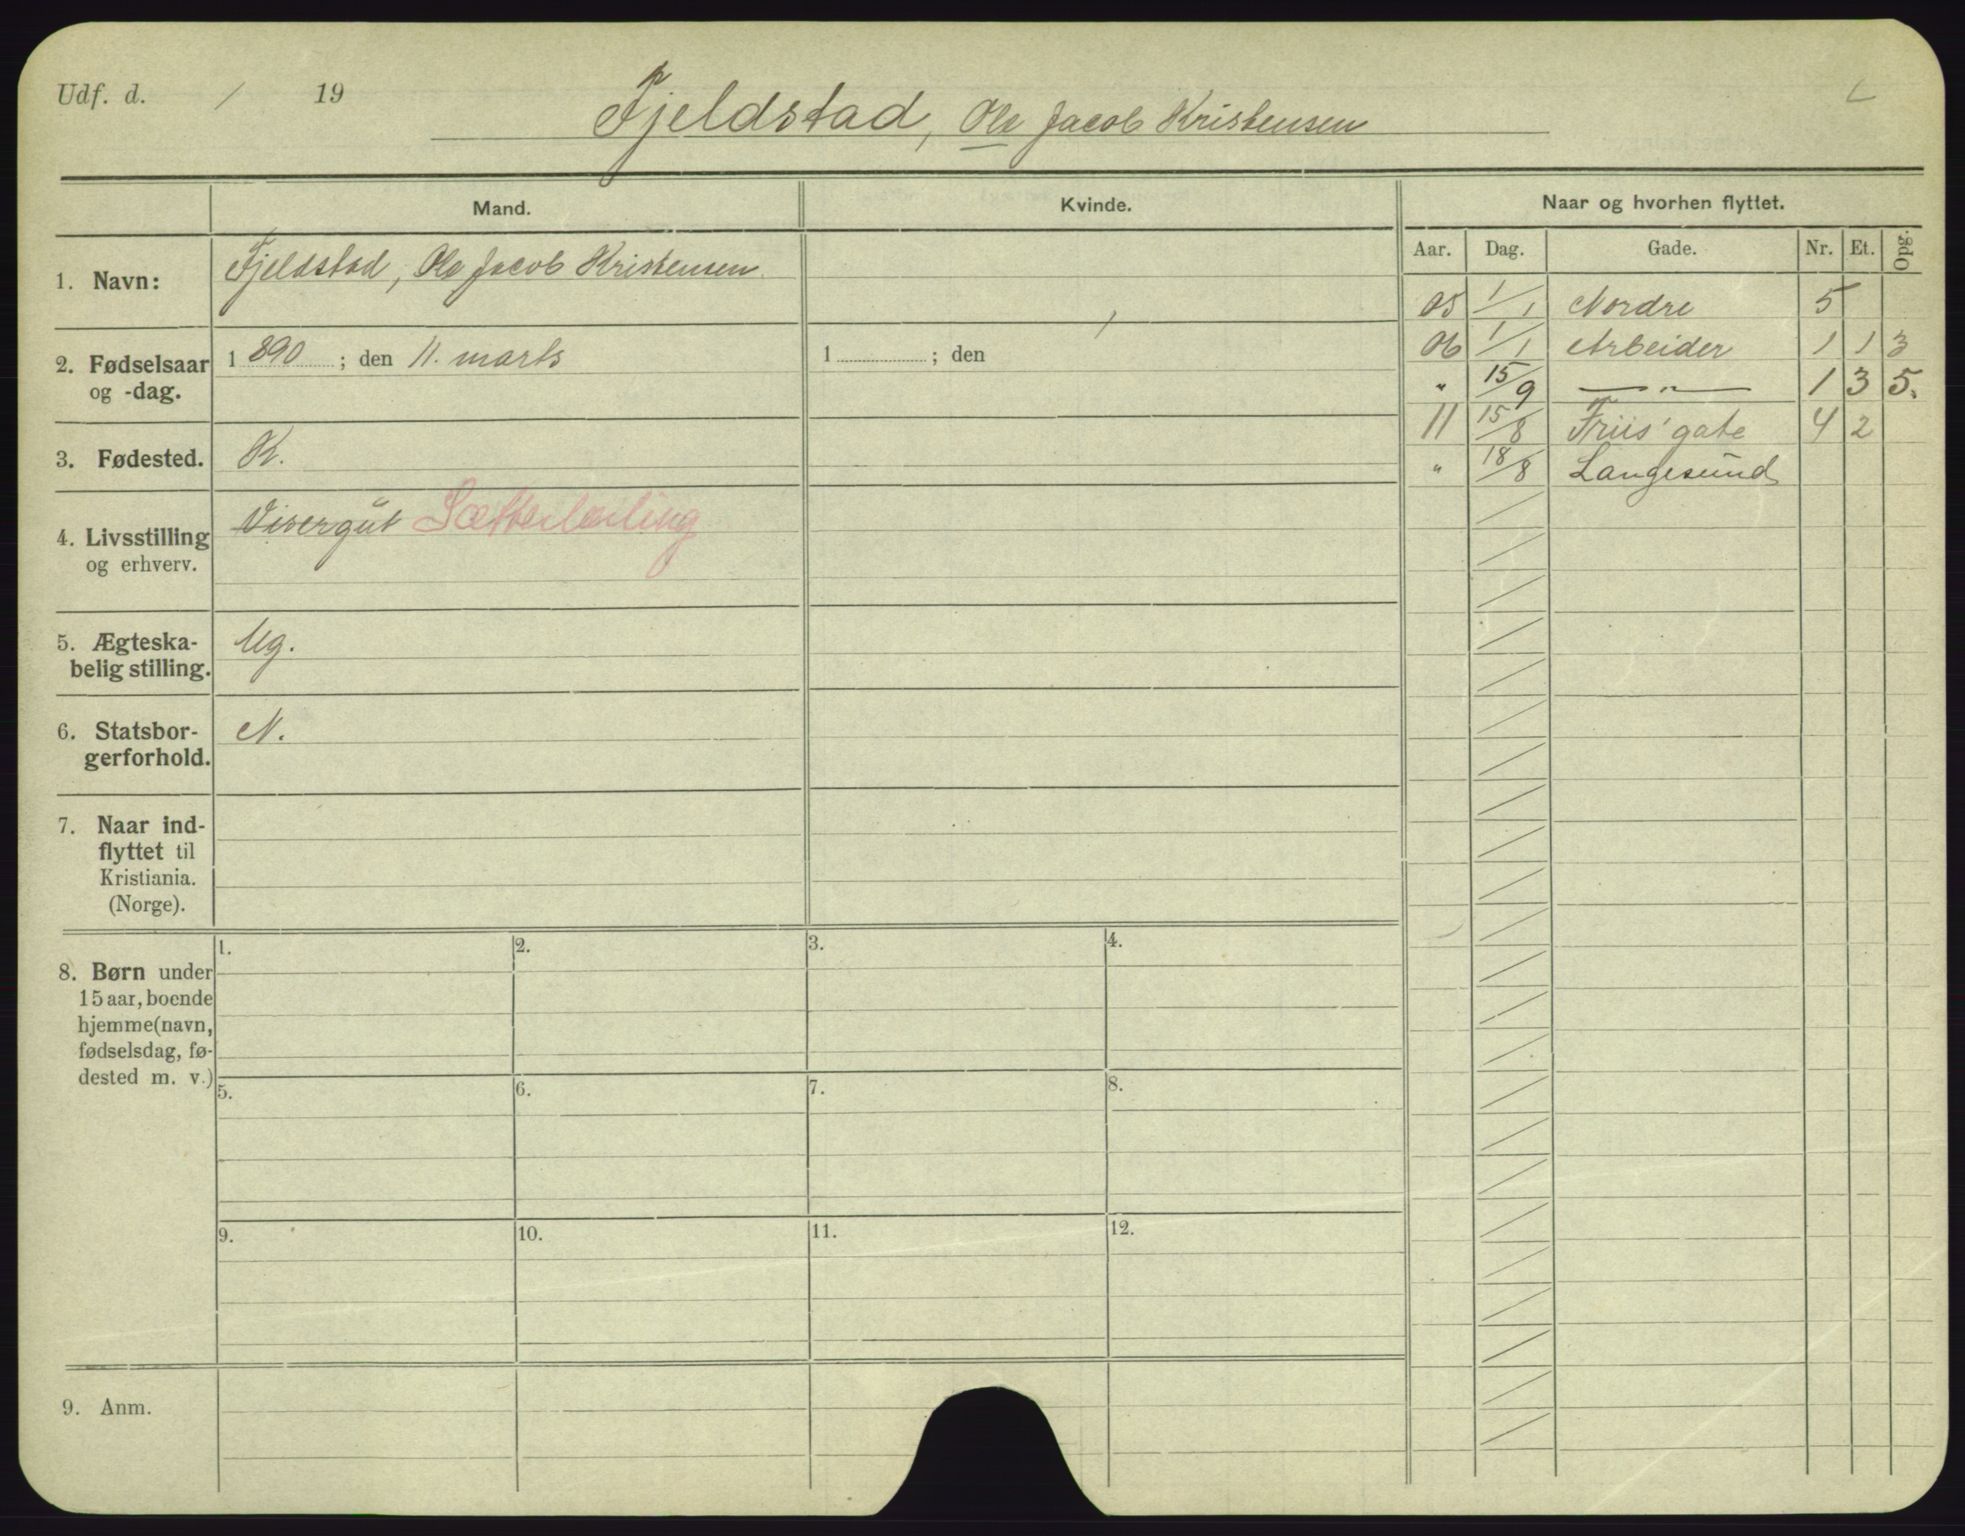 Udf. d. / 19
Fjeldstad, Ole Jacob Kristensen
Mand. Kvinde. Naar og hvorhen flyttet.
Aar. Dag. Gade. Nr. Et. Opg.
1. Navn: Fjeldstad, Ole Jacob Kristensen
05 1/1 Nordre 5
06 1/1 Arbeider 1 1 3
" 15/9 —"— 1 3 5.
11 15/8 Friis' gate 4 2
" 18/8 Langesund
2. Fødselsaar 1890 ; den 11. marts 1 ; den
og -dag.
3. Fødested. K.
4. Livsstilling Visergut Sætterlærling
og erhverv.
5. Ægteska- Ug.
belig stilling.
6. Statsbor- N.
gerforhold.
7. Naar ind-
flyttet til
Kristiania.
(Norge).
8. Børn under
15 aar, boende
hjemme (navn,
fødselsdag, fø-
dested m. v.)
1. 2. 3. 4.
5. 6. 7. 8.
9. 10. 11. 12.
9. Anm.